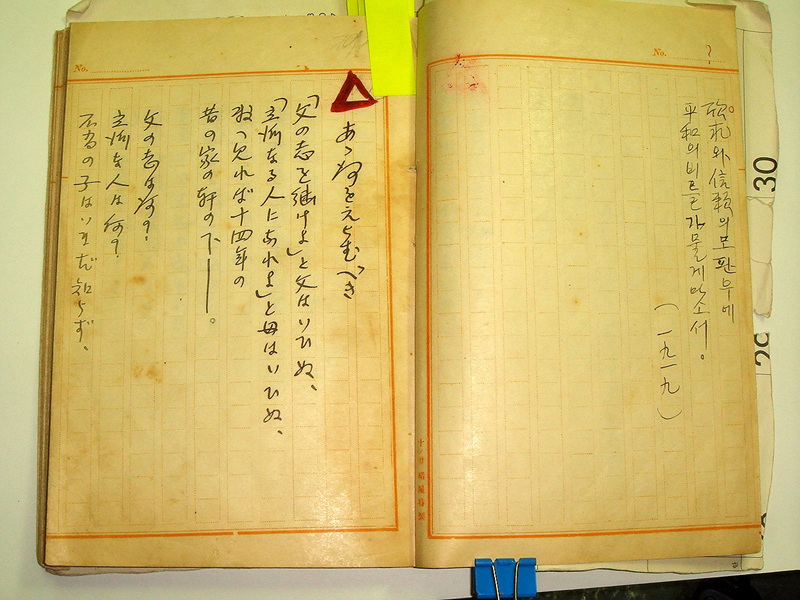 No. ?
와 信賴의 모판우에
平和의 가물게마소서。
(一九一九)
No.
あゝ何をえらむべき
「父の志を継げよ」と父はいひぬ、
「立派なる人になれよ」と母はいひぬ、
れば十四年の
昔の家の軒の下――。
父の志は何？
立派な人は何？
不肖の子はいまだ知らず。
30
29